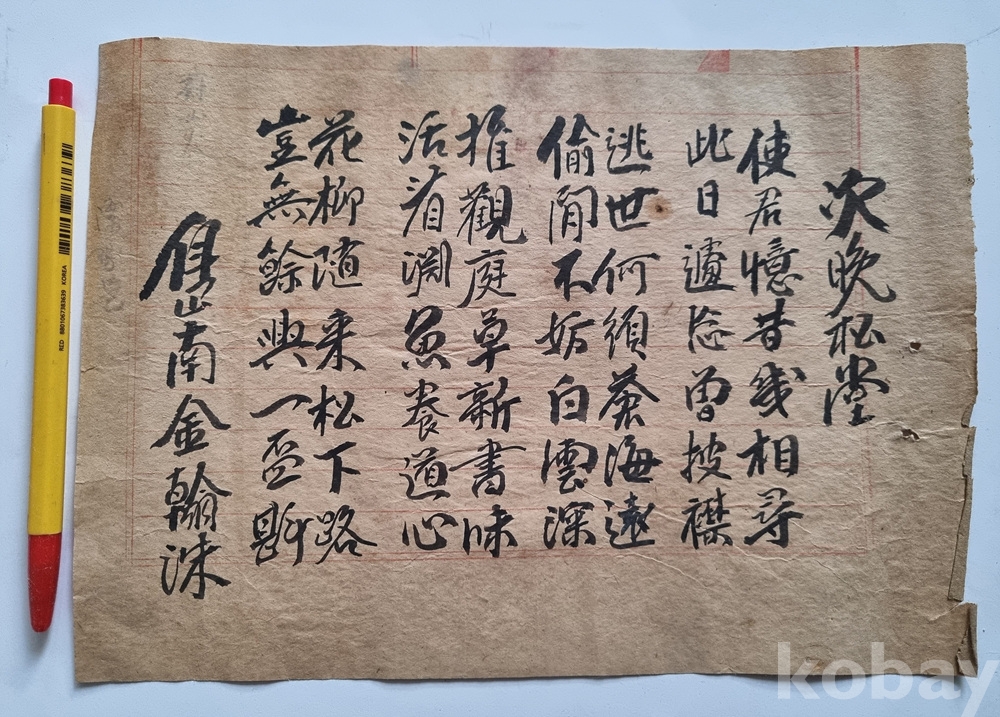 次晩松堂
使君憶昔幾相尋
此日遽忘曽披襟
逃世何須蒼海遠
偷閒不妨白雲深
推觀庭草新書味
活看淵魚養道心
花柳隨来松下路
豈無餘興一盃斟
南金翰洙
RED 8801067383639 KOREA
kobay